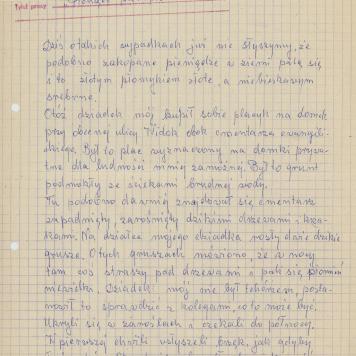 Tytuł pracy
Dziś o takich wypadkach już nie słyszymy, że
podobno zakopane pieniądze w ziemi palą się
i to złotym płomykiem złote, a niebieskawym
srebrne.
Otóż dziadek mój kupił sobie placyk na domek
przy obecnej ulicy Widok obok cmentarza ewangeli-
ckiego. Był to plac wyznaczony na domki prywa-
tne dla ludności mniej zamożnej. Był to grunt
podmokły ze ściekami brudnej wody.
Tu podobno dawniej znajdował się cmentarz
zapadnięty, zarośnięty dzikimi drzewami i krza-
kami. Na działce mojego dziadka rosły duże dzikie
grusze. O tych gruszach mówiono, że w nocy
tam coś straszy pod drzewami i pali się płomień
niebieski. Dziadek mój nie był tchórzem, posta-
nowił to sprawdzić z kolegami, co to może być.
Ukryli się w zaroślach i czekali do północy.
W pierwszej chwili usłyszeli brzęk, jak gdyby